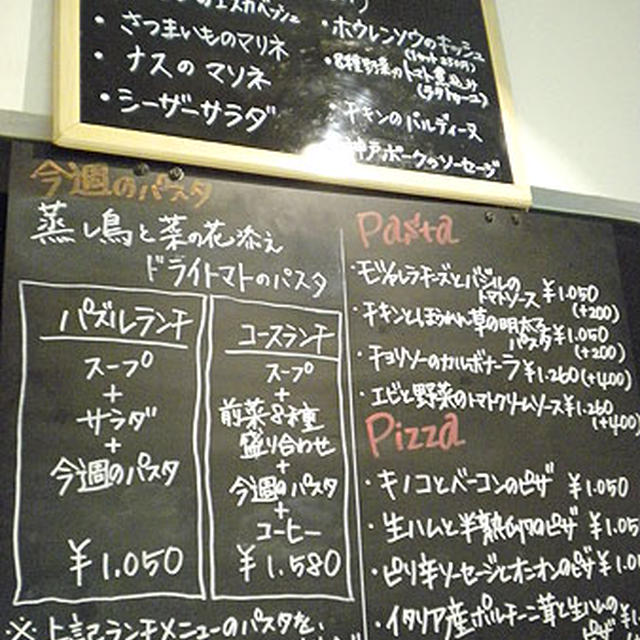 エスカベッシュ
・さつまいものマリネ
・ナスのマリネ
・シーザーサラダ
・ホウレンソウのキッシュ
・8種野菜のトマト煮込み
(ラタトゥーユ)
チキンのバルディーヌ
神戸ポークのソーセージ
今週のパスタ
蒸し鳥と菜の花添え
ドライトマトのパスタ
パズルランチ
スープ
+
サラダ
+
今週のパスタ
¥1.050
コースランチ
スープ
+
前菜8種
盛り合わせ
+
今週のパスタ
+
コーヒー
¥1.580
※上記ランチメニューのパスタを、
Pasta
・モッツァレラチーズとバジルの
トマトソース ¥1.050
(+200)
・チキンとほうれん草の明太子
パスタ ¥1.050
(+200)
・チョリソーのカルボナーラ ¥1.260(+400)
・エビと野菜のトマトクリームソース ¥1.260
(+400)
Pizza
・キノコとベーコンのピザ ¥1.050
・生ハムと半熟のピザ ¥1.05
・ピリ辛ソーセージとオニオンのピザ ¥1.0
・イタリア産ポルチーニ茸と生ハムの
ピザ